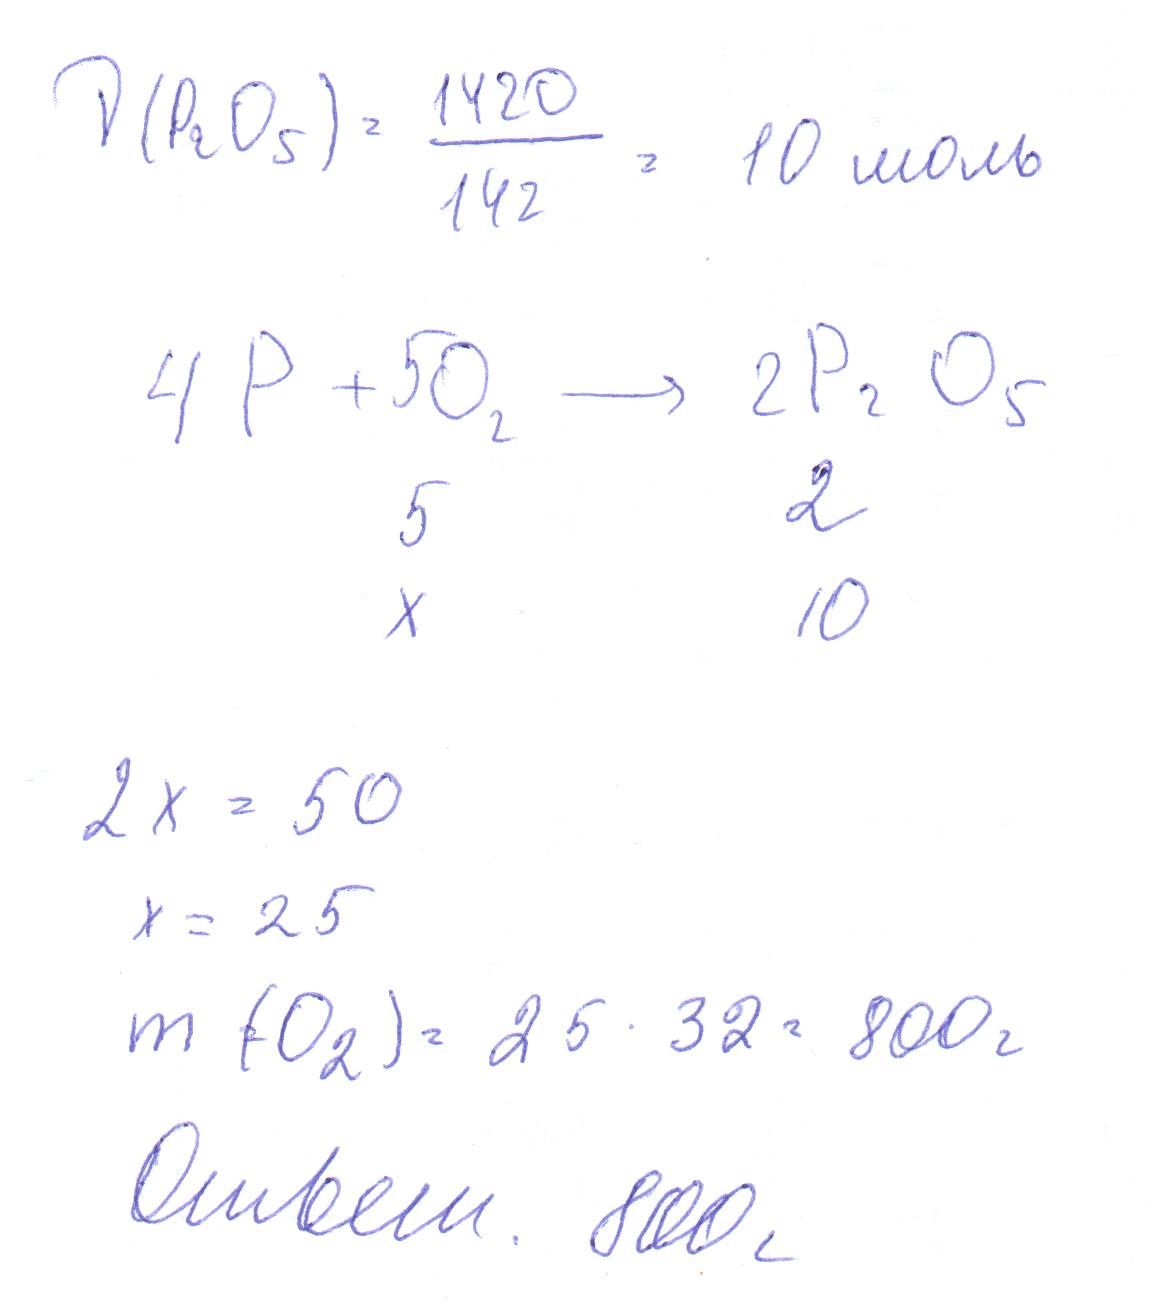 ν(P₂O₅) = 1420/142 = 10 моль
4P + 5O₂ → 2P₂O₅
5 2
x 10
2x = 50
x = 25
m(O₂) = 25 · 32 = 800г
Ответ. 800г